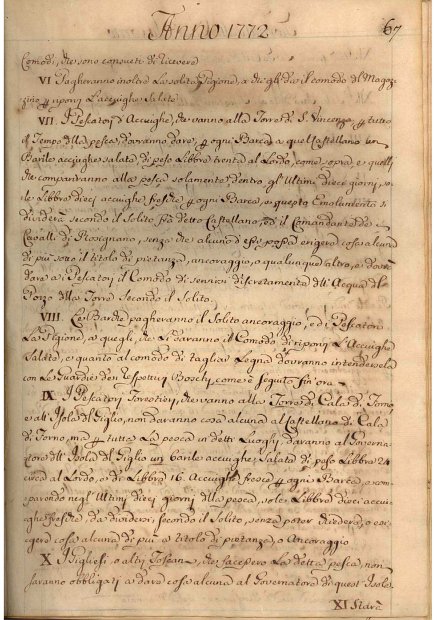 Anno 1772
67
Comodi, che sono consueti di ricevere
VI Pagheranno inoltre la solita Pigione, a chi gli dia il comodo di Magaz-
zino p riporvi l'acciughe Salate
VII. I Pescatori d'Acciughe, che vanno alla Torre di S. Vincenzo, p tutto
il Tempo della pesca, dovranno dare, p ogni Barca a quel Castellano un
Barile acciughe salate, di peso Libbre trenta al Lordo, come sopra, e quelli
che comparivanno alla pesca solamente dentro gli Ultimi dieci giorni, so-
le Libbre dieci acciughe fresche p ogni Barca, e questo Emolumento si
dividerà secondo il Solito fra detto Castellano, ed il Comandante de
Cavalli di Rosignano, senza che alcuno d'essi possa exigere cosa alcuna
di più sotto il titolo di pietanza, ancoraggio, o qualunque altro, e dovrà
dare a Pescatori il Comodo di servirsi discretamente dell'Acqua del
Pozzo della Torre Secondo il Solito
VIII. Le Barche pagheranno il Solito ancoraggio, ed i Pescatori
La Pigione, a quegli, che Li daranno il Comodo di riporvi L'Acciughe
Salate, e quanto al comodo di tagliar Legna dovranno intendersela
con Le Guardie de Respettivi Boschi, come è seguito fin'ora
IX I Pescatori Forestieri, che vanno alla Torre di Cala di Forno,
e all'Isola del Giglio, non daranno cosa alcuna al Castellano di Cala
di Forno, ma p tutta La pesca in detti Luoghi daranno al Governa-
tore dell'Isola del Giglio un barile acciughe Salate di peso Libbre 24
circa al Lordo, e di Libbre 16. Acciughe fresche p ogni Barca, e com-
parendo negl'Ultimi dieci giorni della pesca, sole Libbre dieci acciu-
ghe fresche, da dividersi, secondo il Solito, senza poter chiedere, o esi-
gere cosa alcuna di più a titolo di pietanza, o Ancoraggio
X I Gigliesi o altri Toscani, che facessero La detta pesca, non
saranno obbligati a dare cosa alcuna al Governatore di quest'Isola.
XI Starà